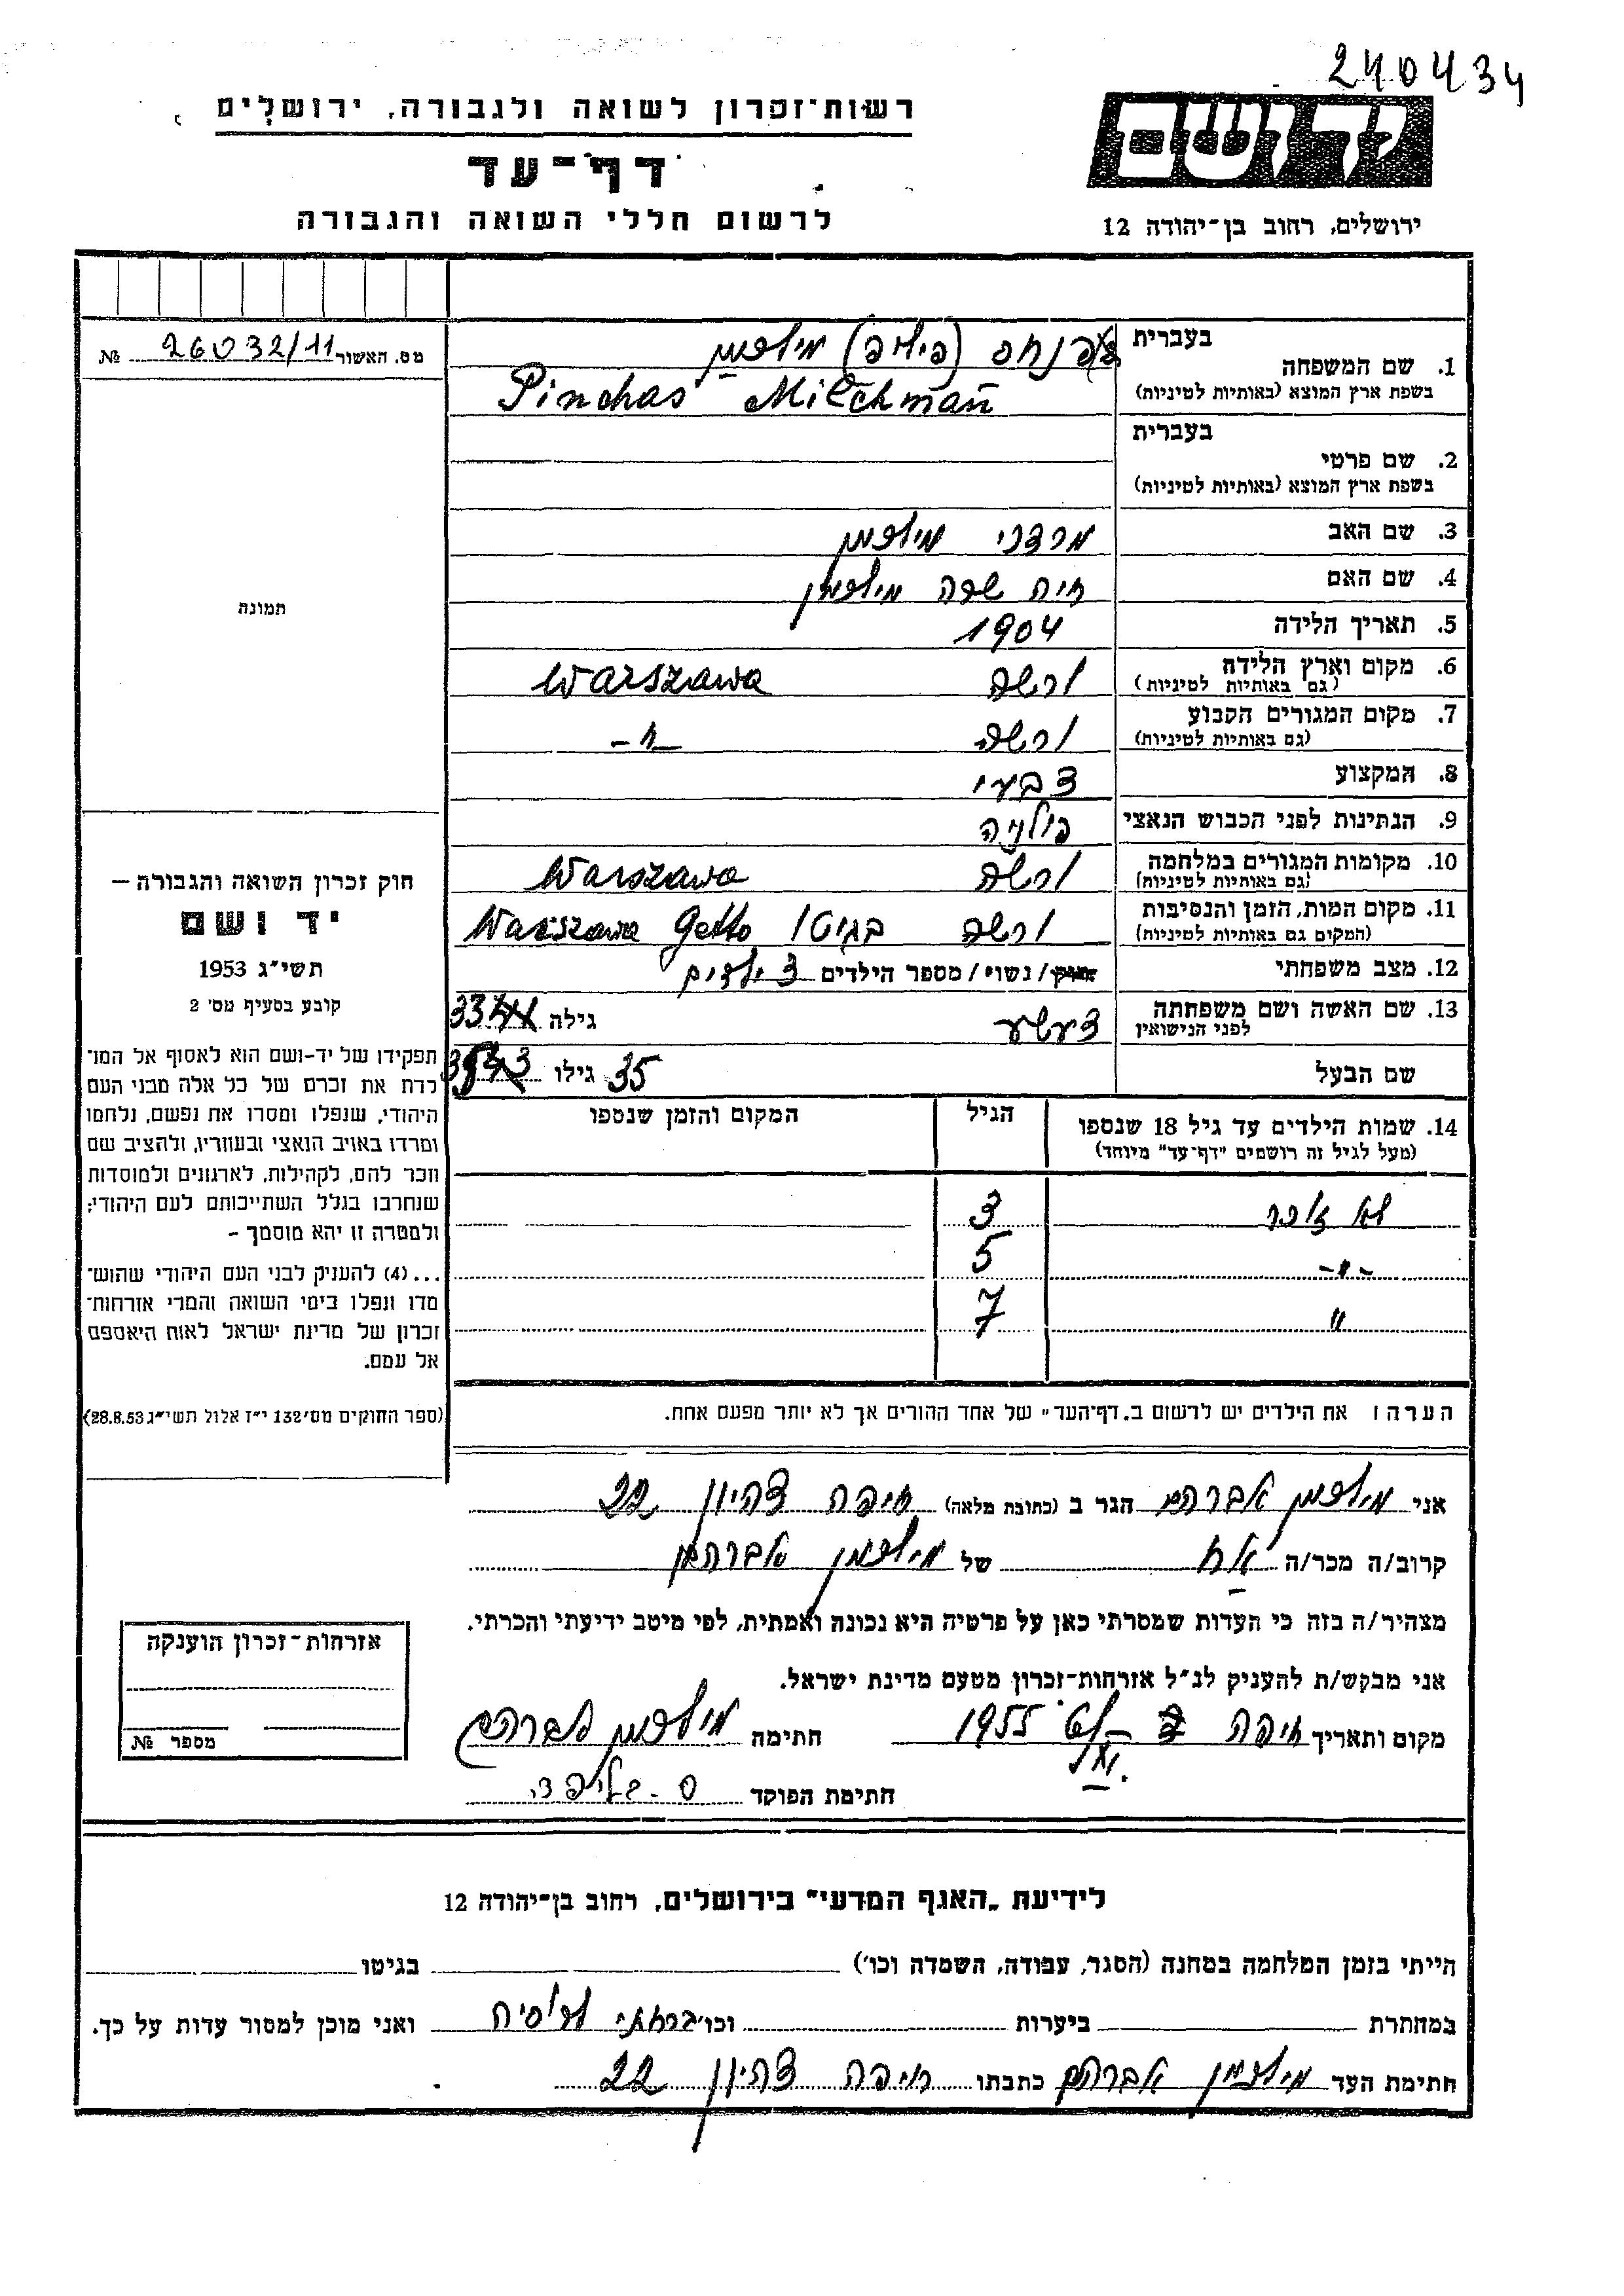 240434
רשות־זכרון לשואה ולגבורה, ירושלים
דף־עד
לרשום חללי השואה והגבורה
יד ושם
ירושלים, רחוב בן־יהודה 12
מס. האשור 26032/11 №
1. שם המשפחה בעברית פנחס (פיליפ) מילכמן
בשפת ארץ המוצא (באותיות לטיניות) Pinchas Milchman
2. שם פרטי בעברית
בשפת ארץ המוצא (באותיות לטיניות)
3. שם האב מרדכי מילכמן
4. שם האם חיה שרה מילכמן
5. תאריך הלידה 1904
6. מקום וארץ הלידה (גם באותיות לטיניות) ורשה Warszawa
7. מקום המגורים הקבוע (גם באותיות לטיניות) ורשה -"-
8. המקצוע צבעי
9. הנתינות לפני הכבוש הנאצי פולניה
10. מקומות המגורים במלחמה (גם באותיות לטיניות) ורשה Warszawa
11. מקום המות, הזמן והנסיבות (המקום גם באותיות לטיניות) ורשה בגיטו Warszawa Getto
12. מצב משפחתי רווק/נשוי/מספר הילדים 3 ילדים
13. שם האשה ושם משפחתה לפני הנישואין גילה 33
שם הבעל גילו 35
תמונה
חוק זכרון השואה והגבורה –
יד ושם
תשי"ג 1953
קובע בסעיף מס' 2
תפקידו של יד-ושם הוא לאסוף אל המו־
לדת את זכרם של כל אלה מבני העם
היהודי, שנפלו ומסרו את נפשם, נלחמו
ומרדו באויב הנאצי ובעוזריו, ולהציב שם
וזכר להם, לקהילות, לארגונים ולמוסדות
שנחרבו בגלל השתייכותם לעם היהודי;
ולמטרה זו יהא מוסמך –
...(4) להעניק לבני העם היהודי שהוש־
מדו ונפלו בימי השואה והמרי אזרחות־
זכרון של מדינת ישראל לאות היאספם
אל עמם.
(ספר החוקים מס' 132 י"ז אלול תשי"ג 28.8.53)
14. שמות הילדים עד גיל 18 שנספו הגיל המקום והזמן שנספו
(מעל לגיל זה רושמים "דף־עד" מיוחד)
לא זוכר 3
-"- 5
" 7
הערה: את הילדים יש לרשום ב"דף־העד" של אחד ההורים אך לא יותר מפעם אחת.
אני מילכמן אברהם הגר ב (כתובת מלאה) חיפה 22
קרוב/ה מכר/ה אח של מילכמן אברהם
מצהיר/ה בזה כי העדות שמסרתי כאן על פרטיה היא נכונה ואמתית, לפי מיטב ידיעתי והכרתי.
אני מבקש/ת להעניק לנ"ל אזרחות־זכרון מטעם מדינת ישראל.
מקום ותאריך חיפה 1955 חתימה מילכמן אברהם
חתימת הפוקד
אזרחות־זכרון הוענקה
מספר №
לידיעת "האגף המדעי" בירושלים, רחוב בן־יהודה 12
הייתי בזמן המלחמה במחנה (הסגר, עבודה, השמדה וכו') בגיטו
במחתרת ביערות וכו' ברחתי לרוסיה ואני מוכן למסור עדות על כך.
חתימת העד מילכמן אברהם כתבתו חיפה 22